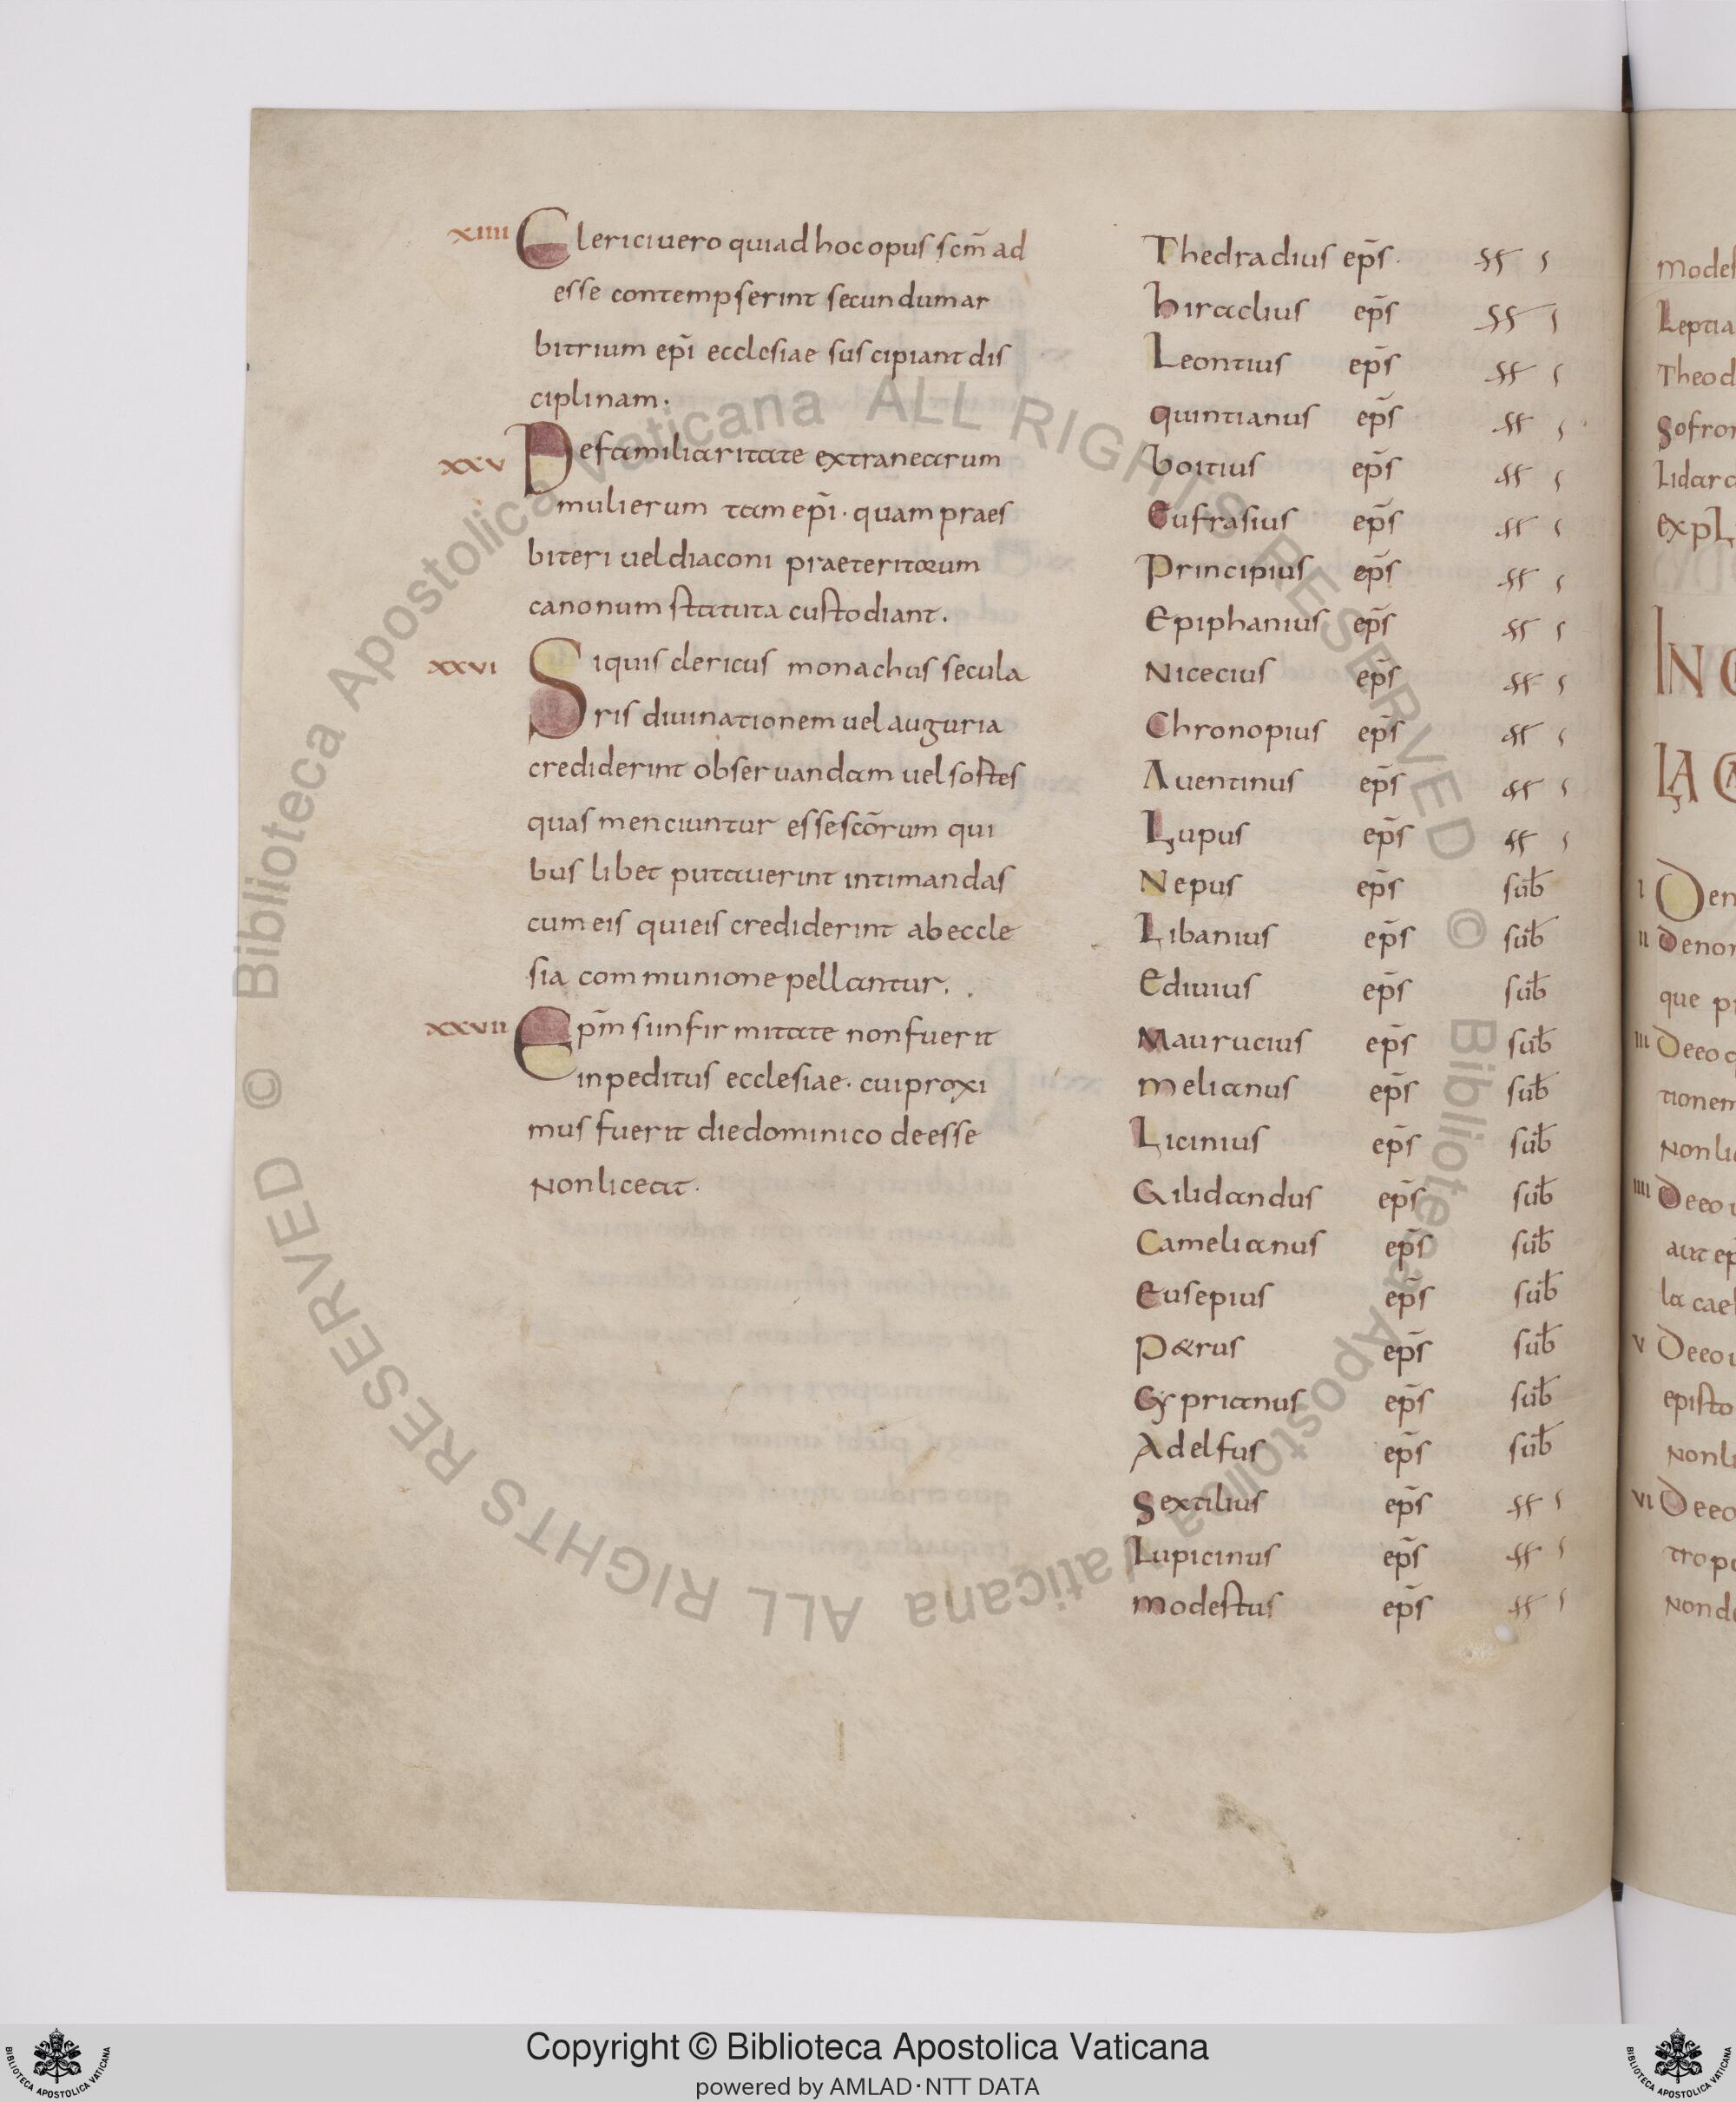 xxiiii Clerici uero qui ad hoc opus scm̄ ad
esse contempserint secundum ar
bitrium ep̄i ecclesiae suscipiant dis
ciplinam.
xxv De familiaritate extranearum
mulierum tam ep̄i. quam praes
biteri uel diaconi praeteritorum
canonum statuta custodiant.
xxvi Si quis clericus monachus secula
ris diuinationem uel auguria
crediderint obseruandam uel sortes
quas menciuntur esse scōrum qui
bus libet putauerint intimandas
cum eis qui eis crediderint ab eccle
sia communione pellantur.
xxvii Ep̄m si infirmitate non fuerit
inpeditus ecclesiae. cui proxi
mus fuerit die dominico deesse
non liceat.
Thedradius ep̄s. ss s
hiraclius ep̄s ss s
Leontius ep̄s ss s
quintianus ep̄s ss s
boitius ep̄s ss s
Eufrasius ep̄s ss s
Principius ep̄s ss s
Epiphanius ep̄s ss s
Nicecius ep̄s ss s
Chronopius ep̄s ss s
Auentinus ep̄s ss s
Lupus ep̄s ss s
Nepus ep̄s sub̄
Libanius ep̄s sub̄
Ediuius ep̄s sub̄
Maurucius ep̄s sub̄
melianus ep̄s sub̄
Licinius ep̄s sub̄
Gilidandus ep̄s sub̄
Camelianus ep̄s sub̄
Eusepius ep̄s sub̄
P&rus ep̄s sub̄
Cyprianus ep̄s sub̄
Adelfus ep̄s sub̄
Sextilius ep̄s ss s
Lupicinus ep̄s ss s
modestus ep̄s ss s
modes
Leptia
Theod
Sofron
Lidara
expL
IN C
LA CA
i Den
ii Denon
que pr
iii Deeo q
tionem
Non li
iiii Deeo u
aut ep
la cae
v Deeo u
episto
Non li
vi Deeo
tropo
Non de
© Biblioteca Apostolica Vaticana ALL RIGHTS RESERVED © Biblioteca Apostolica Vaticana ALL RIGHTS RESERVED
BIBLIOTECA APOSTOLICA VATICANA
Copyright © Biblioteca Apostolica Vaticana
powered by AMLAD·NTT DATA
BIBLIOTECA APOSTOLICA VATICANA